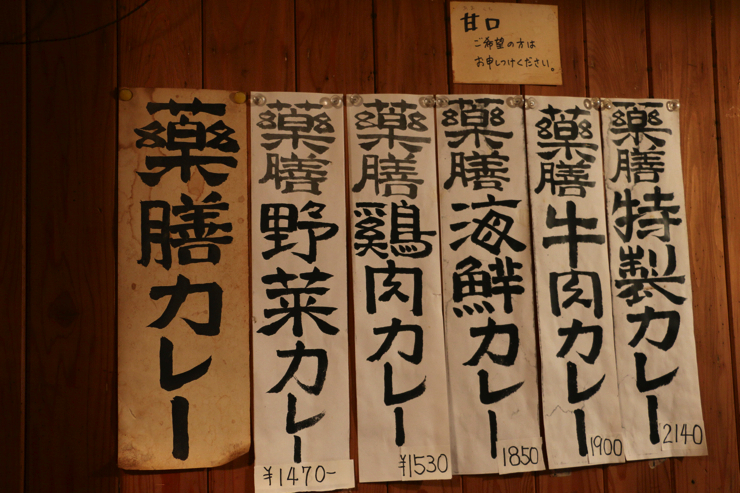 甘口
ご希望の方は
お申しつけください。
藥膳カレー
藥膳野菜カレー
¥1470-
藥膳鷄肉カレー
¥1530
藥膳海鮮カレー
1850
藥膳牛肉カレー
1900
藥膳特製カレー
2140